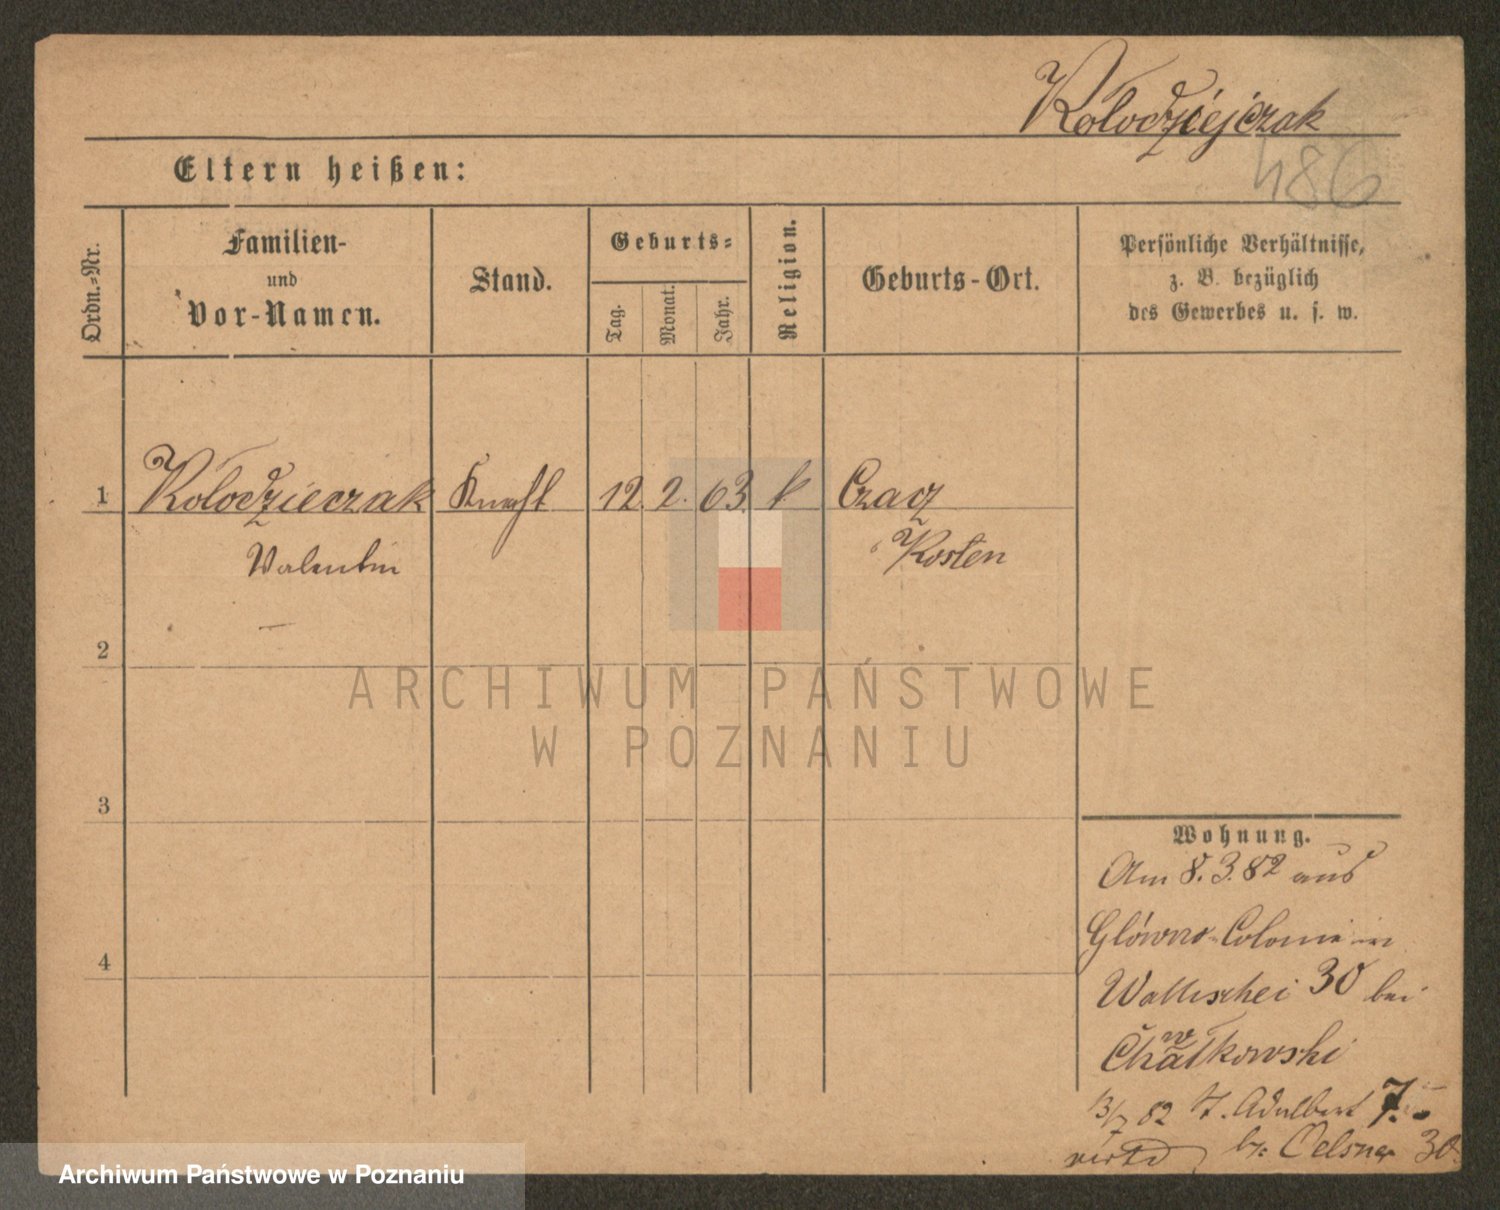 Kołodziejczak
486
Eltern heißen:
Ordn.-Nr.
Familien-
und
Vor-Namen.
Stand.
Geburts-
Tag.
Monat.
Jahr.
Religion.
Geburts-Ort.
Persönliche Verhältnisse,
z. B. bezüglich
des Gewerbes u. s. w.
1 Kołodzieczak Knecht 12. 2. 63. k Czacz
Valentin Kosten
2
3
4
Wohnung.
Am 8.3.82 aus
Główno-Colonie in
Wallischei 30 bei
Chwałkowski
13/7 82 St. Adalbert 7.
b. Oelsner 30
ARCHIWUM PAŃSTWOWE
W POZNANIU
Archiwum Państwowe w Poznaniu